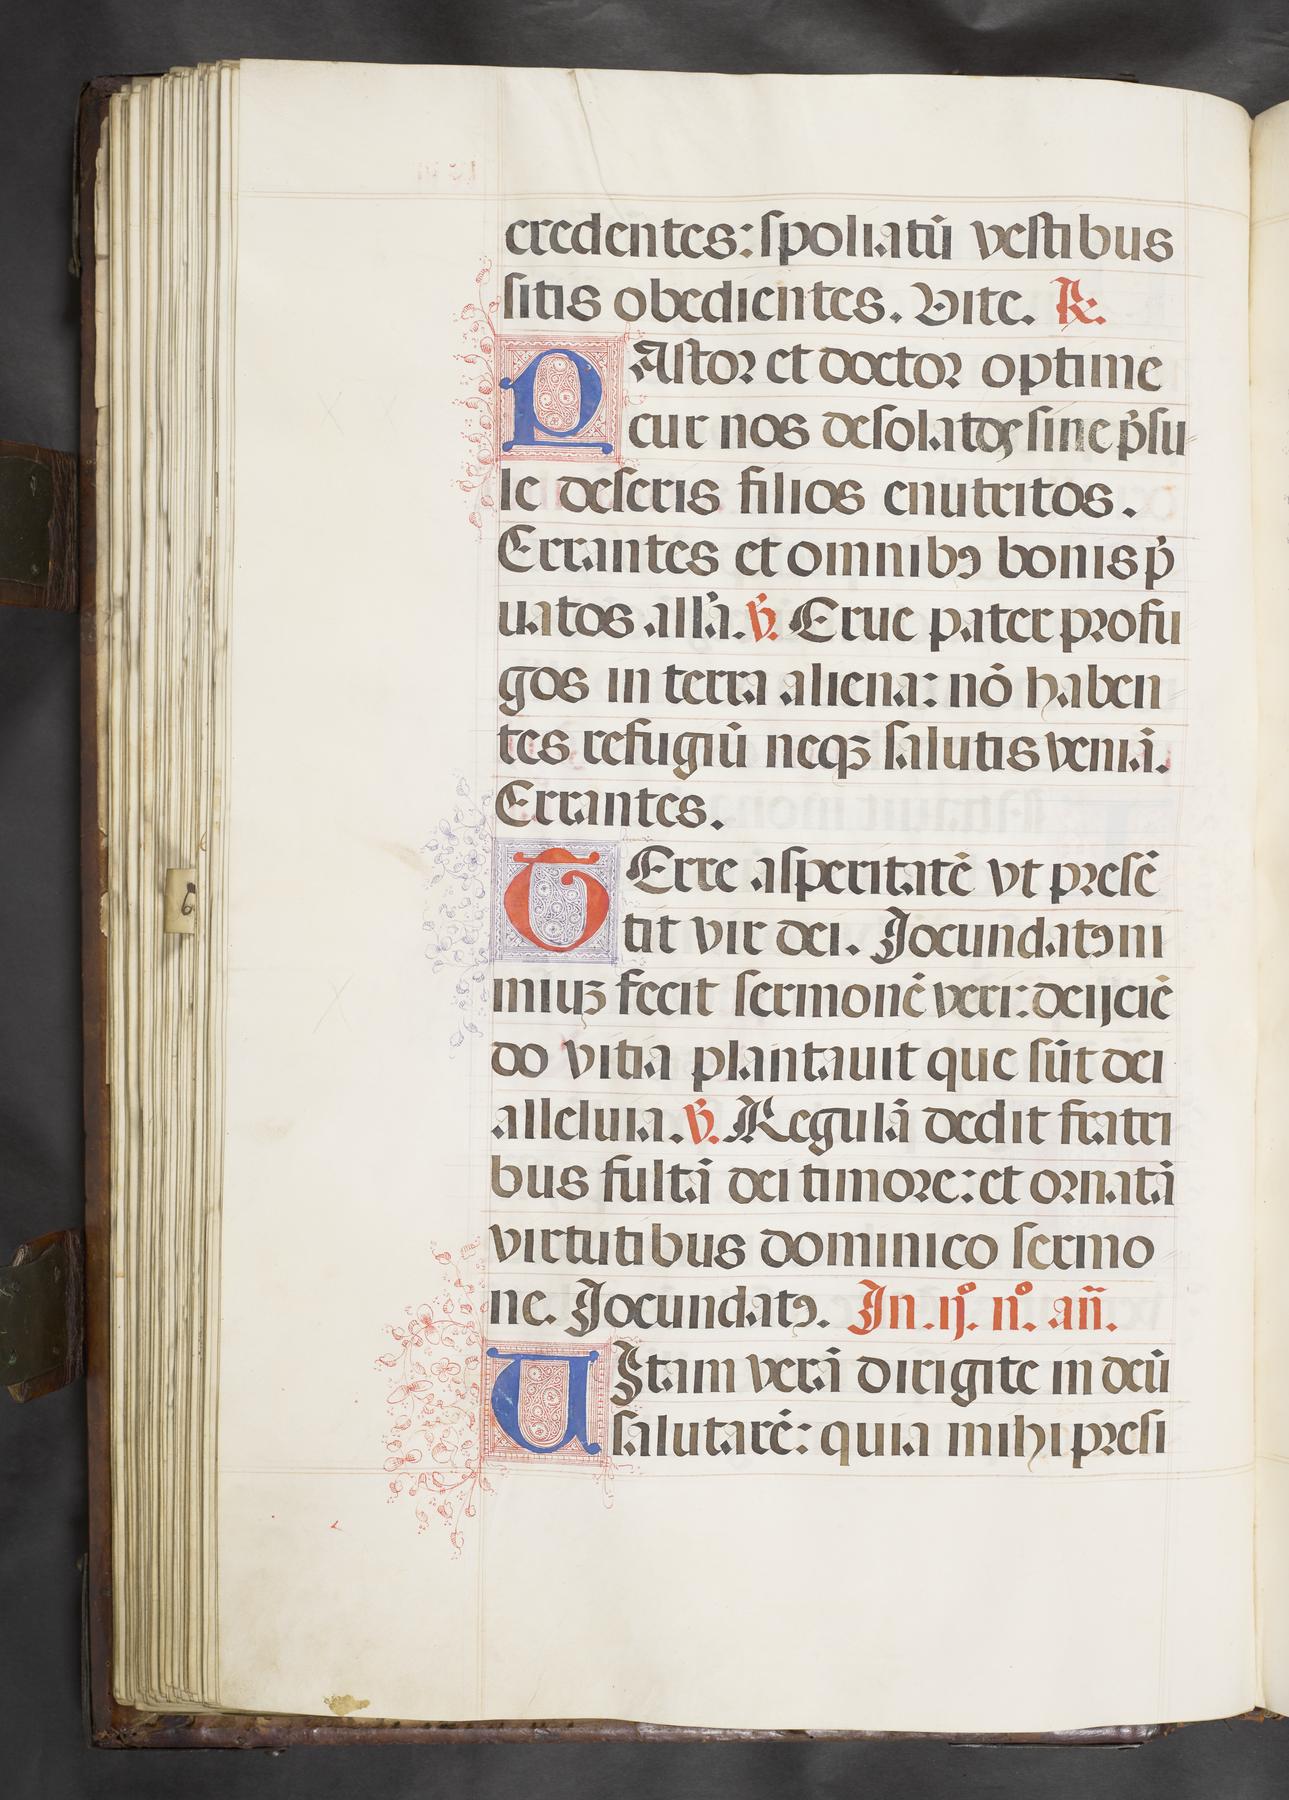 credentes: spoliatū vestibus
sitis obedientes. Vite. ℟.
PAstor et doctor optime
cur nos desolatos sine p̄su
le deseris filios enutritos.
Errantes et omnibꝰ bonis p̄
uatos all'a. ℣. Erue pater profu
gos in terra aliena: nō haben
tes refugiū neqꝫ salutis veniā.
Errantes.
TErre asperitatē vt presē
tit vir dei. Jocundatꝰ ni
miuꝫ fecit sermonē veri: deijciē
do vitia plantauit que sūt dei
alleluia. ℣. Regulā dedit fratri
bus fultā dei timore: et ornatā
virtutibus dominico sermo
ne. Jocundatꝰ. In .ijº. nº. an̄.
UJtam verā dirigite in deū
salutarē: quia mihi presi
6